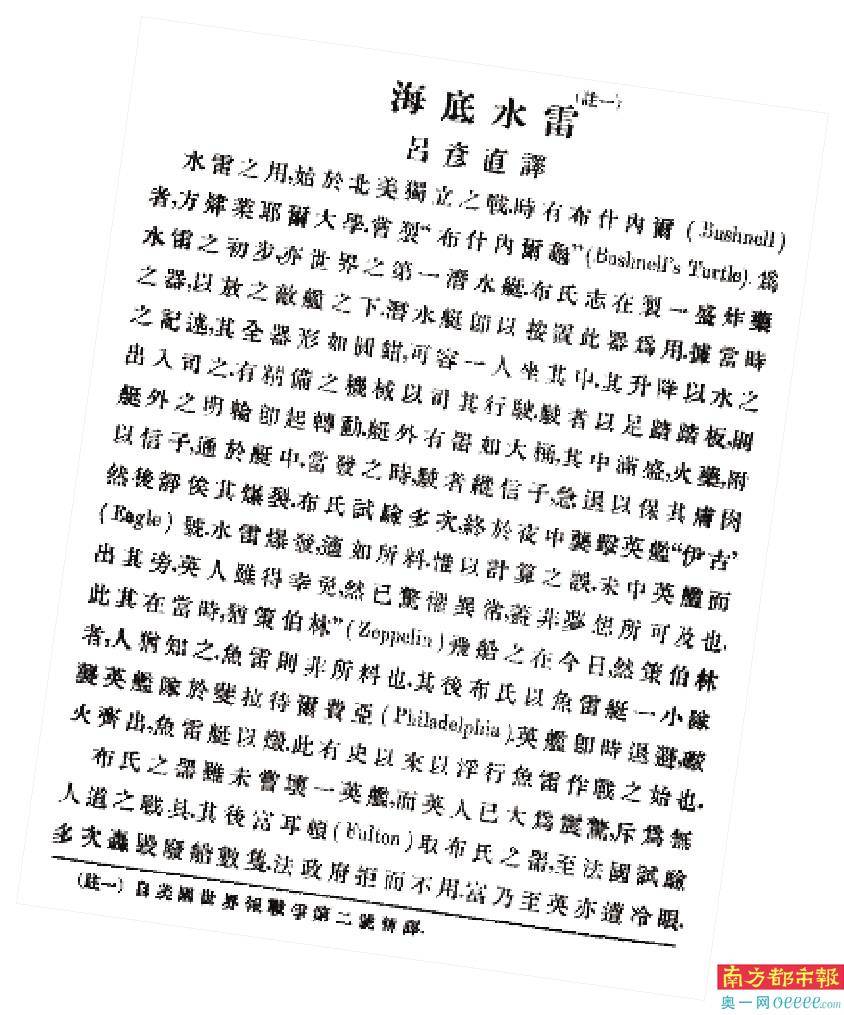 海底水雷(註一)
呂彥直譯
水雷之用,始於北美獨立之戰.時有布什內爾 (Bushnell)
者,方肄業耶爾大學.嘗製“布什內爾龜”(Bushnell's Turtle).爲
水雷之初步,亦世界之第一潛水艇.布氏志在製一盛炸藥
之器,以放之敵艦之下.潛水艇卽以按置此器爲用.據當時
之記述,其全器形如圓錯,可容一人坐其中.其升降以水之
出入司之.有精備之機械以司其行駛.駛者以足踏踏板,則
艇外之明輪卽起轉動.艇外有器如大桶,其中滿盛火藥,附
以信子,通於艇中.當發之時,駛者縱信子,急退以保其膚肉
然後靜俟其爆裂.布氏試驗多次,終於夜中襲擊英艦“伊古”
(Eagle) 號.水雷爆發,適如所料.惟以計算之誤.未中英艦而
出其旁.英人雖得幸免,然已驚懼異常,蓋非夢想所可及也.
此其在當時,猶“策伯林”(Zeppelin)飛船之在今日,然策伯林
者,人猶知之.魚雷則非所料也.其後布氏以魚雷艇一小隊
襲英艦隊於斐拉待爾費亞(Philadelphia),英艦卽時退避,礮
火齊出,魚雷艇以燬.此有史以來以浮行魚雷作戰之始也.
布氏之器雖未嘗壞一英艦,而英人已大爲震驚,斥爲無
人道之戰具.其後富耳頓(Fulton)取布氏之器,至法國試驗
多次轟毀廢船數隻.法政府拒而不用.富乃至英亦遭冷眼.
(註一) 自美國世界報戰爭第二號節譯.
南方都市報
奥一网oeeee.com